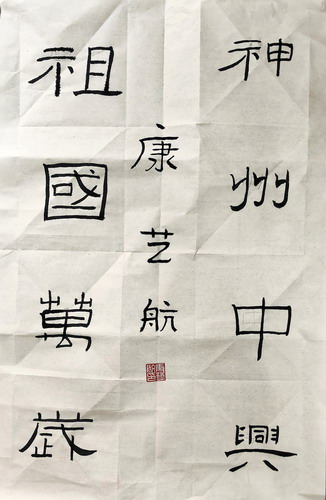 神州中興
祖國萬歲
康艺航